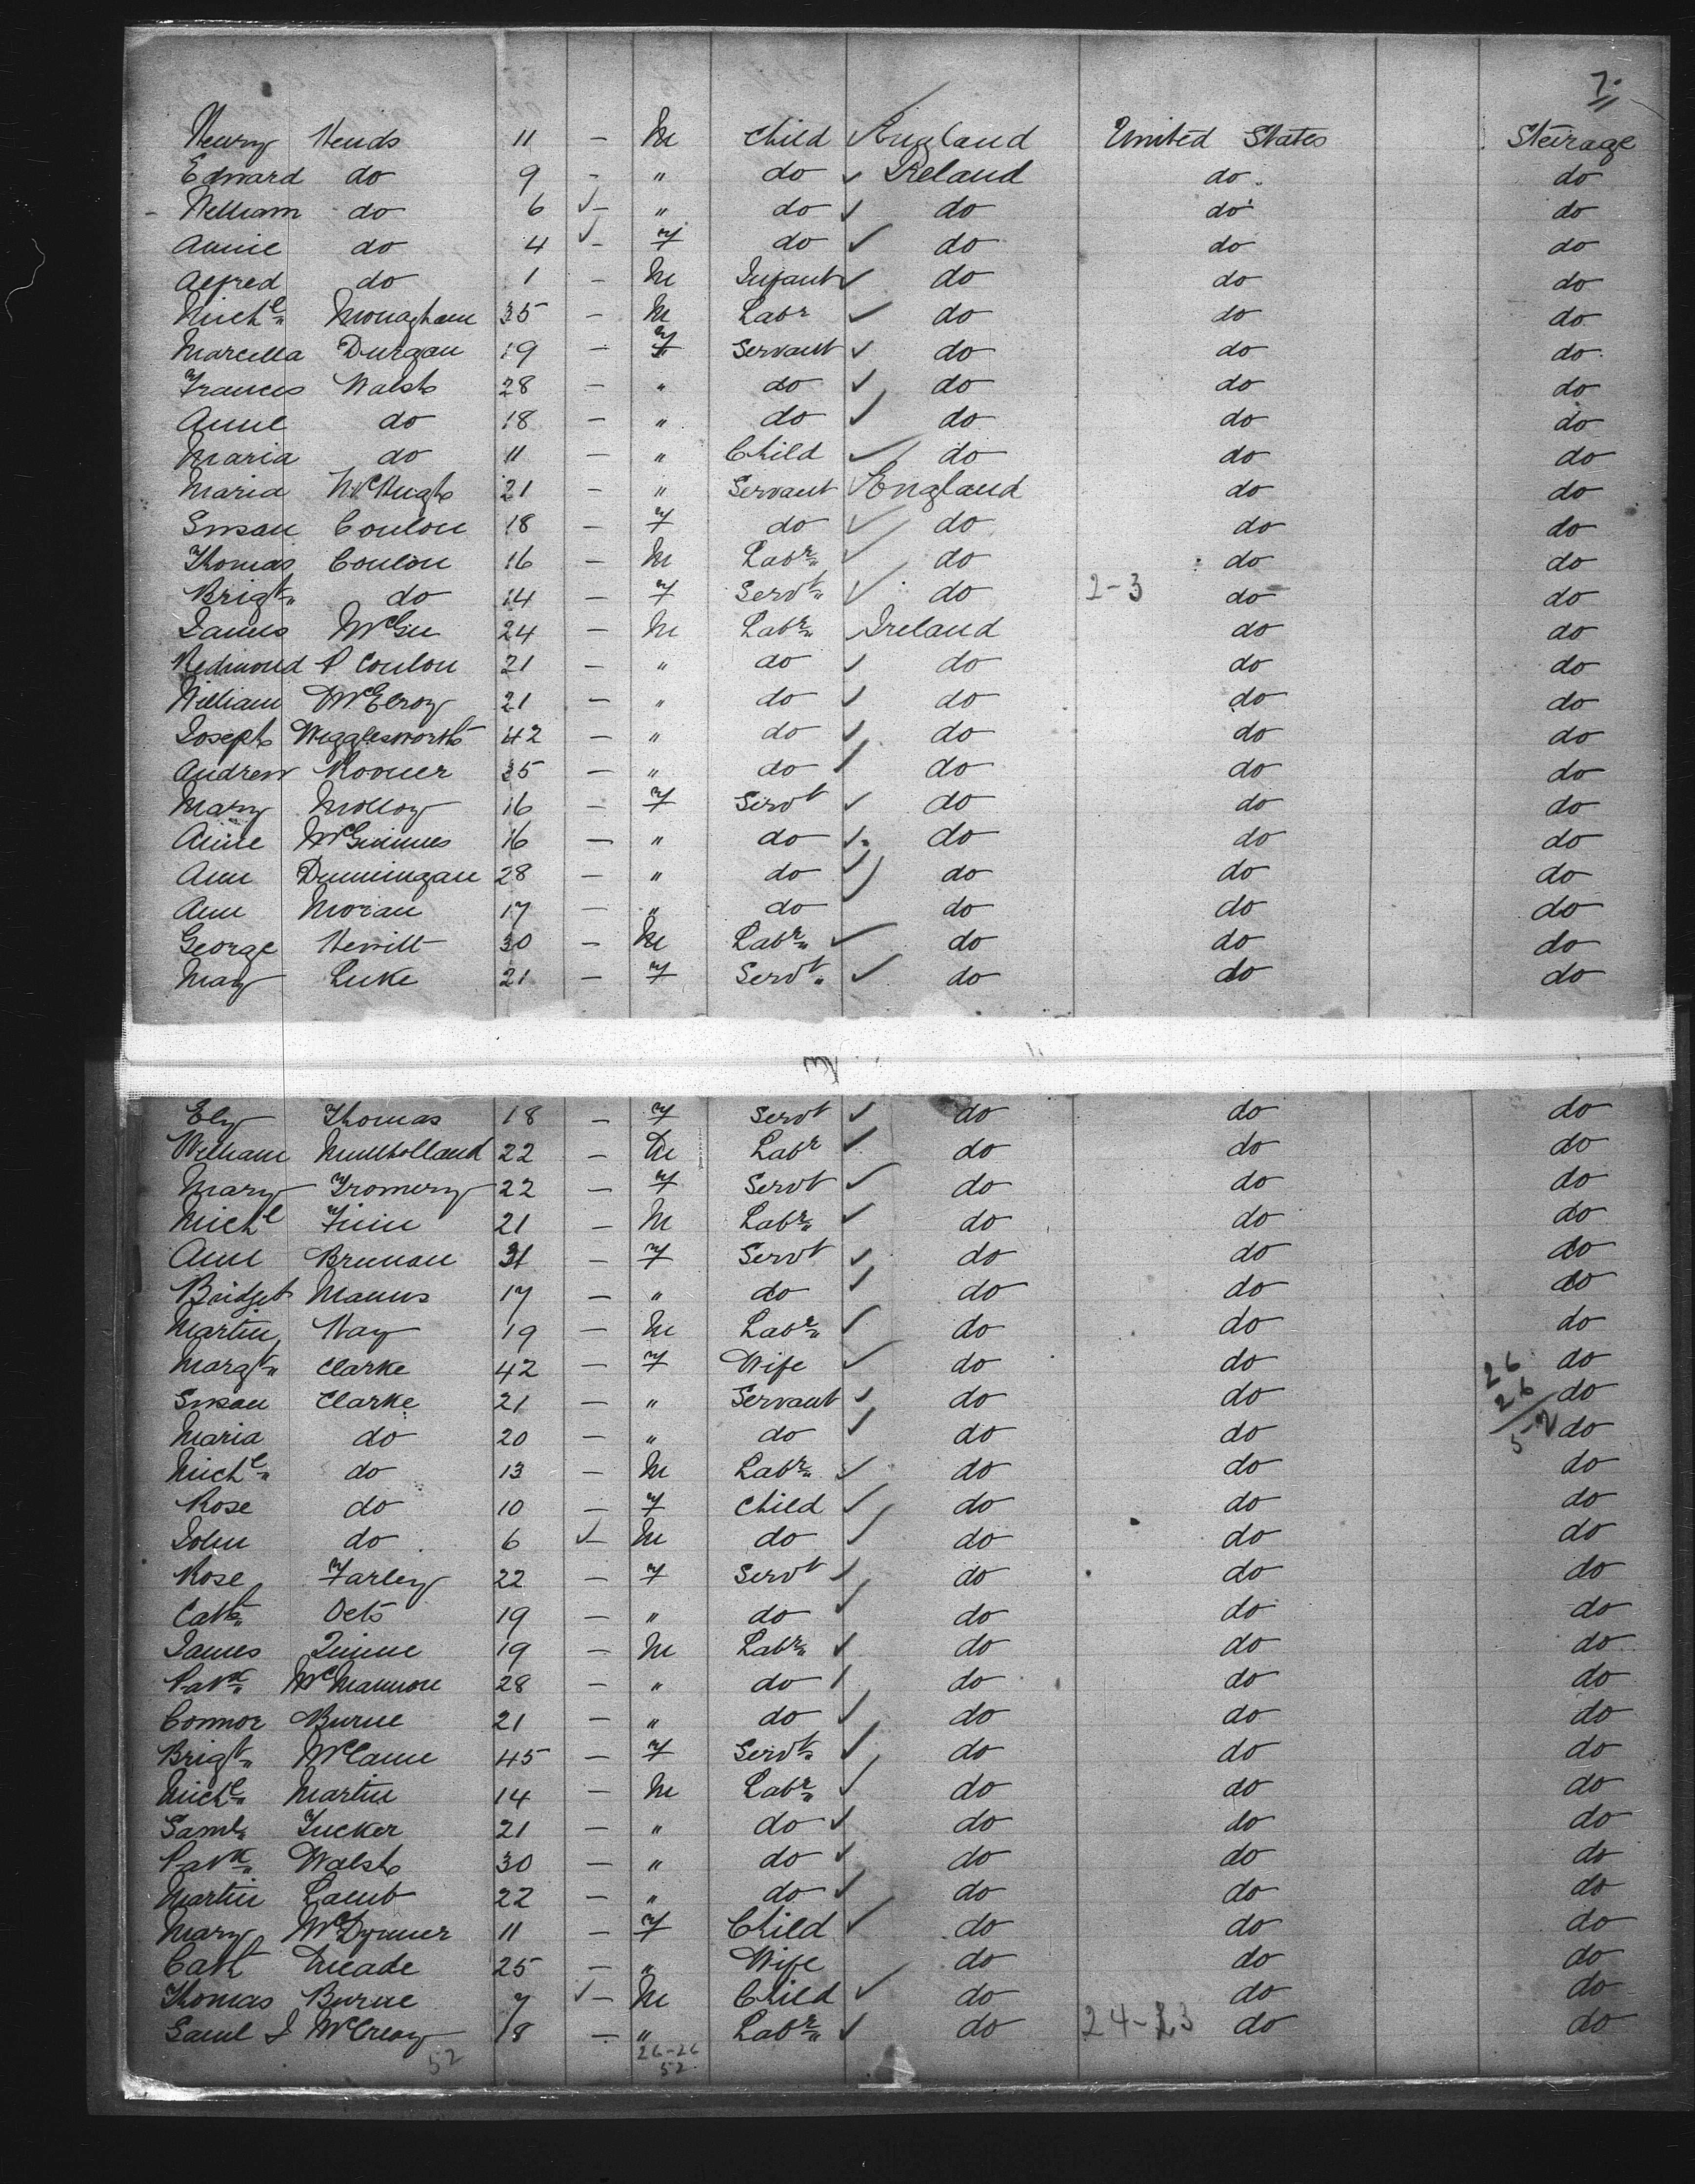 7.
Henry Hends 11 — M Child England United States Steirage
Edward do 9 - " do ✓ Ireland do. do
William do 6 ✓- " do ✓ do do do
Annie do 4 ✓- F do ✓ do do do
Alfred do 1 - M Infant ✓ do do do
Michl Monaghan 35 - M Labr ✓ do do do
Marcella Durgan 19 - F Servant ✓ do do do
Frances Walsh 28 - " do ✓ do do do
Anne do 18 - " do ✓ do do do
Maria do 11 - " Child ✓ do do do
Maria McHugh 21 - " Servant ✓ England do do
Susan Conlon 18 - F do ✓ do do do
Thomas Conlon 16 - M Labr ✓ do do do
Brigt do 14 - F Servt ✓ do 2-3 do do
James McGee 24 - M Labr Ireland do do
Redmond P Conlon 21 - " do ✓ do do do
William McElroy 21 - " do ✓ do do do
Joseph Wigglesworth 42 - " do ✓ do do do
Andrew Rooner 35 - " do ✓ do do do
Mary Molloy 16 - F Servt ✓ do do do
Anne McGuinnes 16 - " do ✓ do do do
Ann Dunningan 28 - " do ✓ do do do
Ann Moran 17 - " do do do do
George Hewitt 30 - M Labr ✓ do do do
Mary Luke 21 - F Servt ✓ do do do
Ely Thomas 18 - F Servt ✓ do do do
William Mullholland 22 - M Labr ✓ do do do
Mary Fromery 22 - F Servt ✓ do do do
Michl Finn 21 - M Labr ✓ do do do
Ann Brennan 31 - F Servt ✓ do do do
Bridget Manns 17 - " do ✓ do do do
Martin Hay 19 - M Labr ✓ do do do
Margt Clarke 42 - F Wife ✓ do do 26 do
Susan Clarke 21 - " Servant ✓ do do 26 do
Maria do 20 - " do ✓ do do 52 do
Michl do 13 - M Labr ✓ do do do
Rose do 10 - F Child ✓ do do do
John do 6 ✓- M do ✓ do do do
Rose Farley 22 - F Servt ✓ do do do
Cath 19 - " do ✓ do do do
James Quinn 19 - M Labr ✓ do do do
Patk McMannon 28 - " do ✓ do do do
Connor Burne 21 - " do ✓ do do do
Brigt McCanne 45 - F Servt ✓ do do do
Michl Martin 14 - M Labr ✓ do do do
Saml Tucker 21 - " do ✓ do do do
Patk Walsh 30 - " do ✓ do do do
Martin Lamb 22 - " do ✓ do do do
Mary 11 - F Child ✓ do do do
Cath Meade 25 - " Wife do do do
Thomas Burne 7 ✓- M Child ✓ do do do
Saml J McCreay 18 - " Labr ✓ do 24-23 do do
52 26-26
52